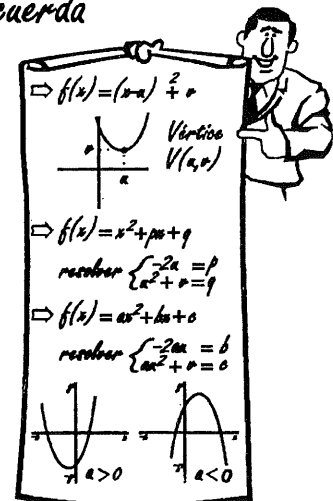 cuerda
⇨ f(x)=(x-u)² + v
v
u
Vértice
V(u,v)
⇨ f(x)=x²+px+q
resolver { -2u = p
u²+v=q
⇨ f(x)=ax²+bx+c
resolver { -2au = b
au²+v=c
a>0
a<0